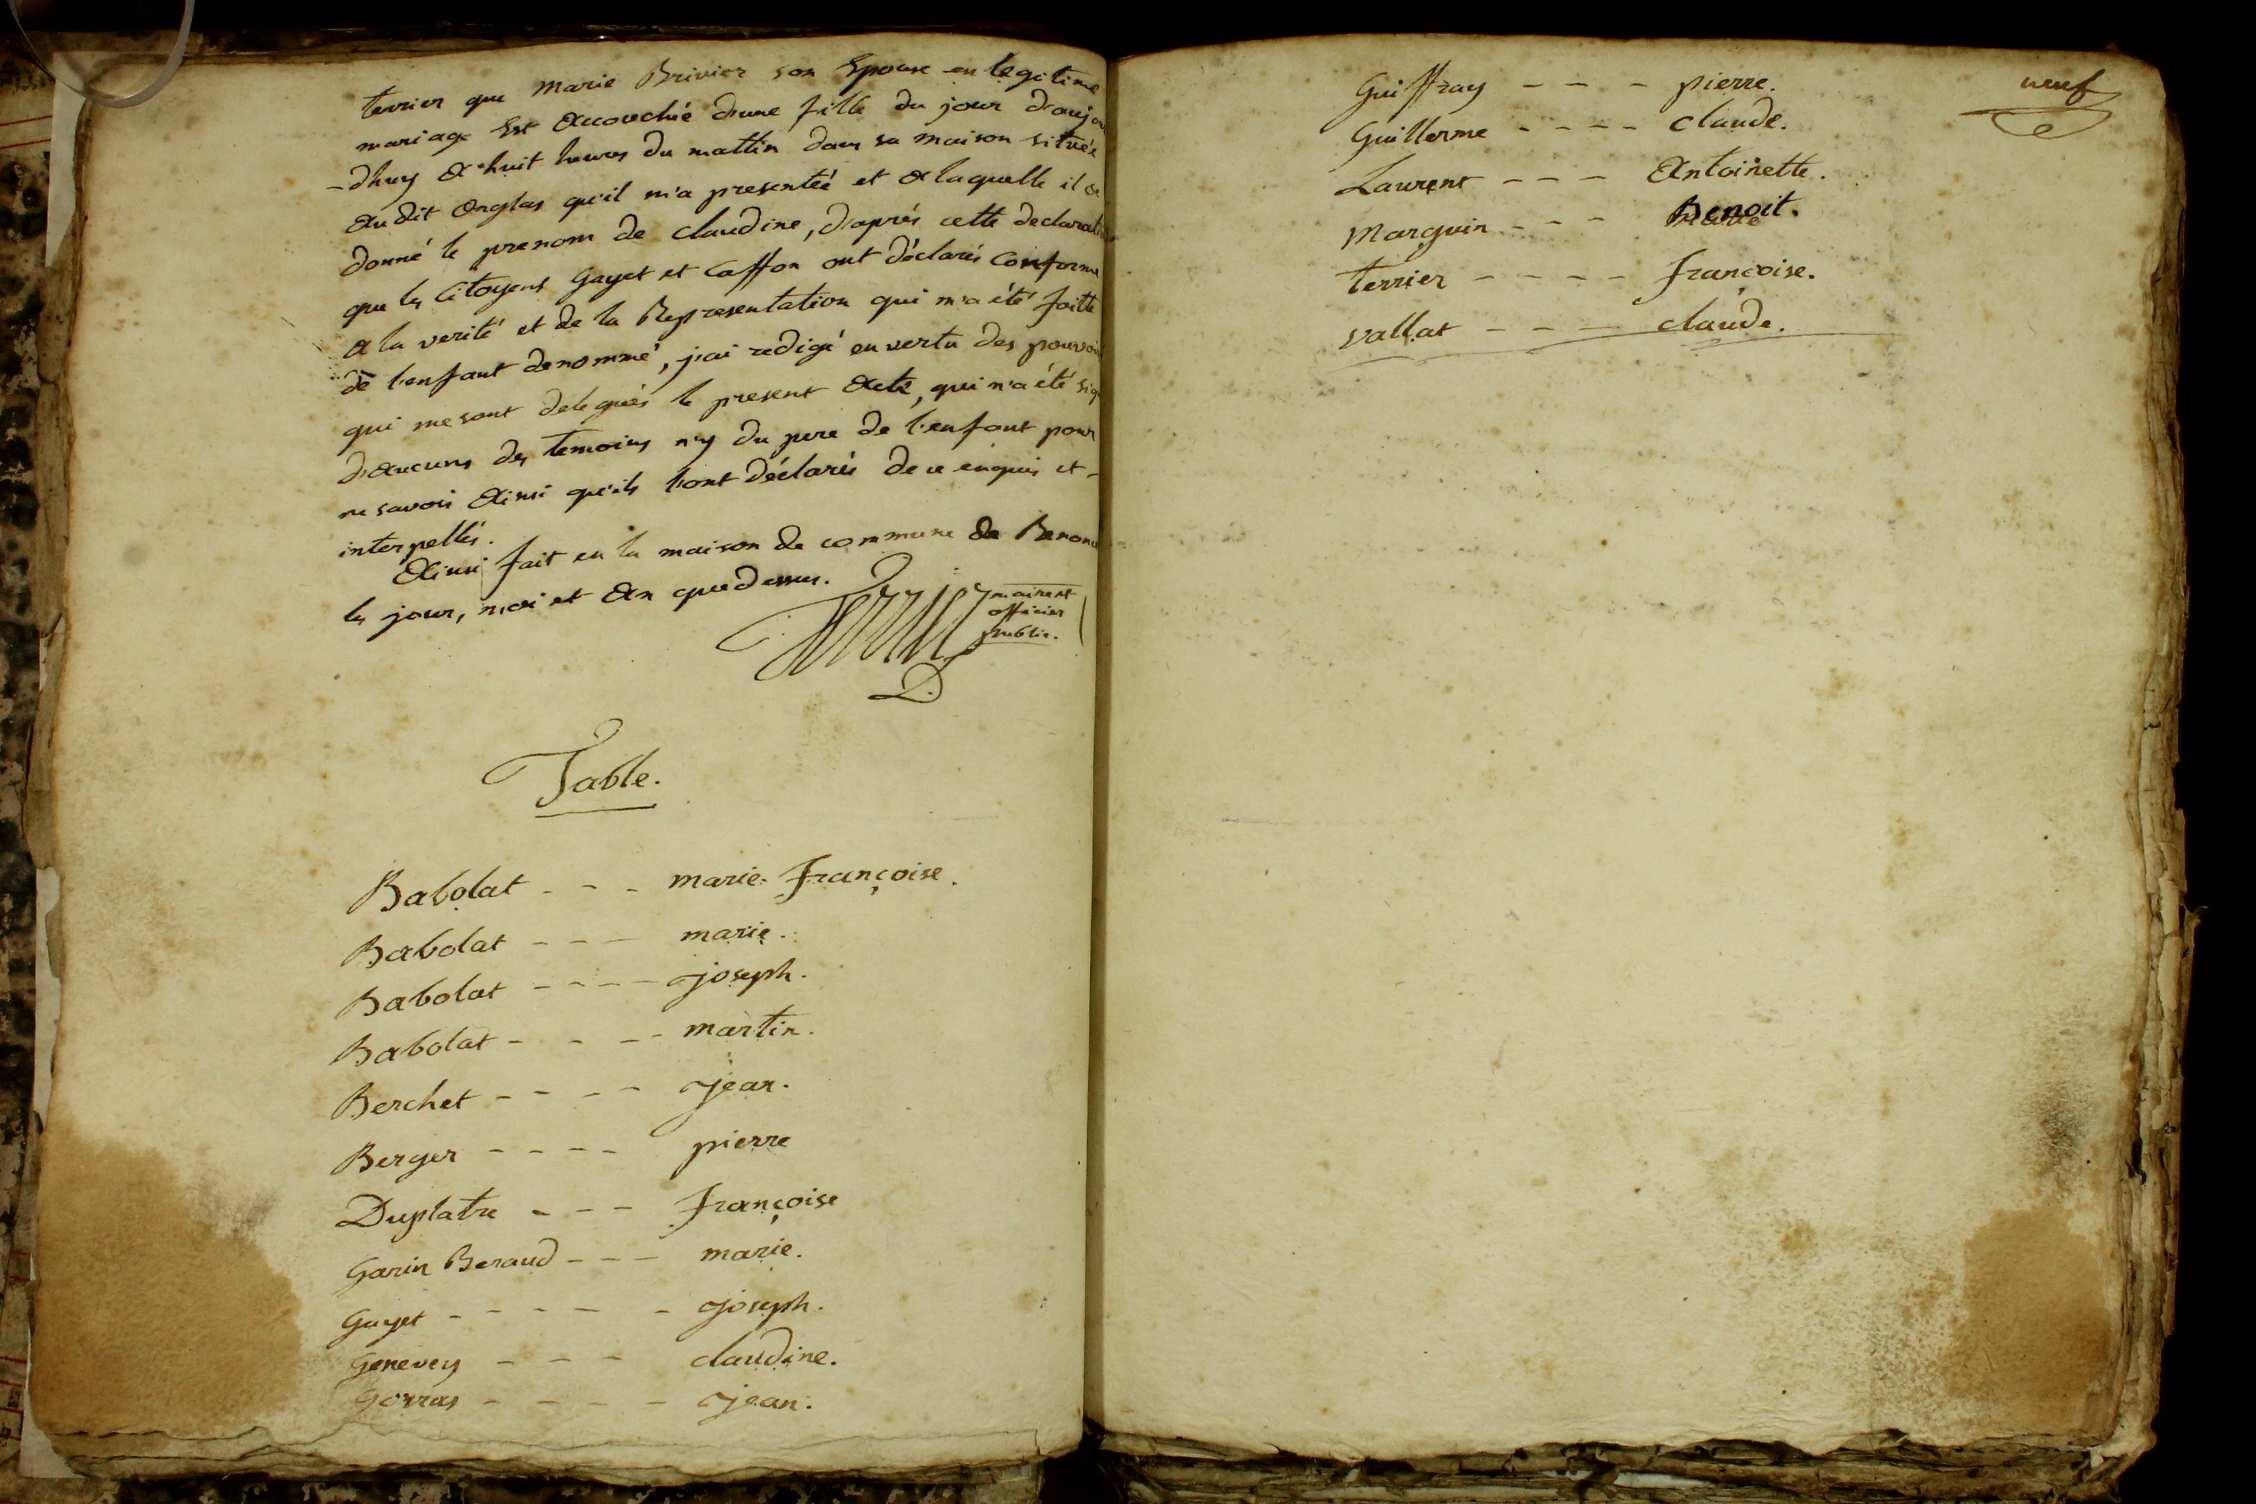 terrier que marie Brivier son Epouse en legitime
mariage Est accouchée d'une fille du jour d'aujou
-dhuy a huit heures du mattin dans sa maison située
audit onglas qu'il m'a presentée et a laquelle il a
donné le prenom de claudine, d'aprés cette declarati
que les Citoyens Gayet et Caffon ont déclarés conforme
a la verité et de la Representation qui m'a été faitte
de l'enfant denommé, j'ai redigé en vertu des pouvoirs
qui me sont delegués le present acte, qui n'a été sig
d'aucuns des temoins n'y du pere de l'enfant pour
ne savoir ainsi qu'ils l'ont déclarés de ce enquis et -
interpellés.
ainsi fait en la maison de commune de Benonce
les jour, moi et an que dessus.
Terrier
maire et
officier
public.
Table.
Babolat - - - marie Françoise.
Babolat - - - marie.
Babolat - - - - joseph.
Babolat - - - - martin.
Berchet - - - - jean.
Berger - - - - pierre
Duplatre - - - Françoise
Garin Beraud - - - marie.
Guyet - - - - - joseph.
Genevey - - - claudine.
Gorras - - - - jean.
neuf
Guiffray - - - pierre.
Guillerme - - - - claude.
Laurent - - - Antoinette.
Marguin - - - Benoit.
terrier - - - - françoise.
vallat - - - claude.